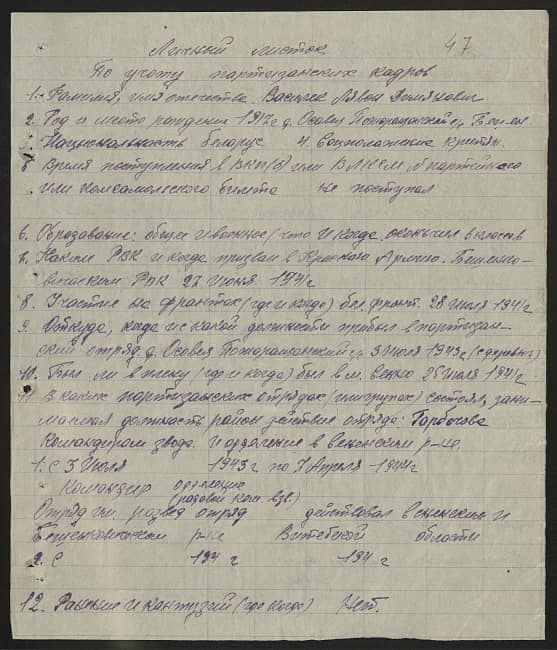 Личный листок 47
По учоту партизанских кадров
1. Фамилия, имя отечества. Василек Лявон Демянович
2. Год и место рождения 1917 г д. Осовец
3. Национальность беларус 4. Социоложение крестян.
5 Время поступления в ВКП(б) или ВЛКСМ N партейного
или комсамольского билета не поступал
6. Образавание: общее и военное (что и когда окончил 8 класов
7. Каким РВК и когда призван в Красную Армию. Бешенко-
вическим РВК 27 июня 1941 г
8. Участие на франтах (где и когда) бел. фронт. 28 июля 1941 г
9. Откуда, када и с какой должнести прибыл в партизан-
ский отряд д. Осовец 3 июля 1943 г (с деревни)
10. Был ли в плену (где и когда) был в м. Сенно 25 июля 1941 г
11 В каких партизанских отрядах (или групах) состоял, зани-
маемая должность район действия отряда: Горбачова
Командиром звода. и одялення в сененским р-не.
1. С 3 Июля 1943 г по 7 Апреля 1944 г
Командир одяления
(рядовой ком. взв.)
Отряд им. развед отряд действовал в сененским и
р-не Витебской области
2. С 194 г 194 г
12. Ранение и контузий (где когда) Нет.